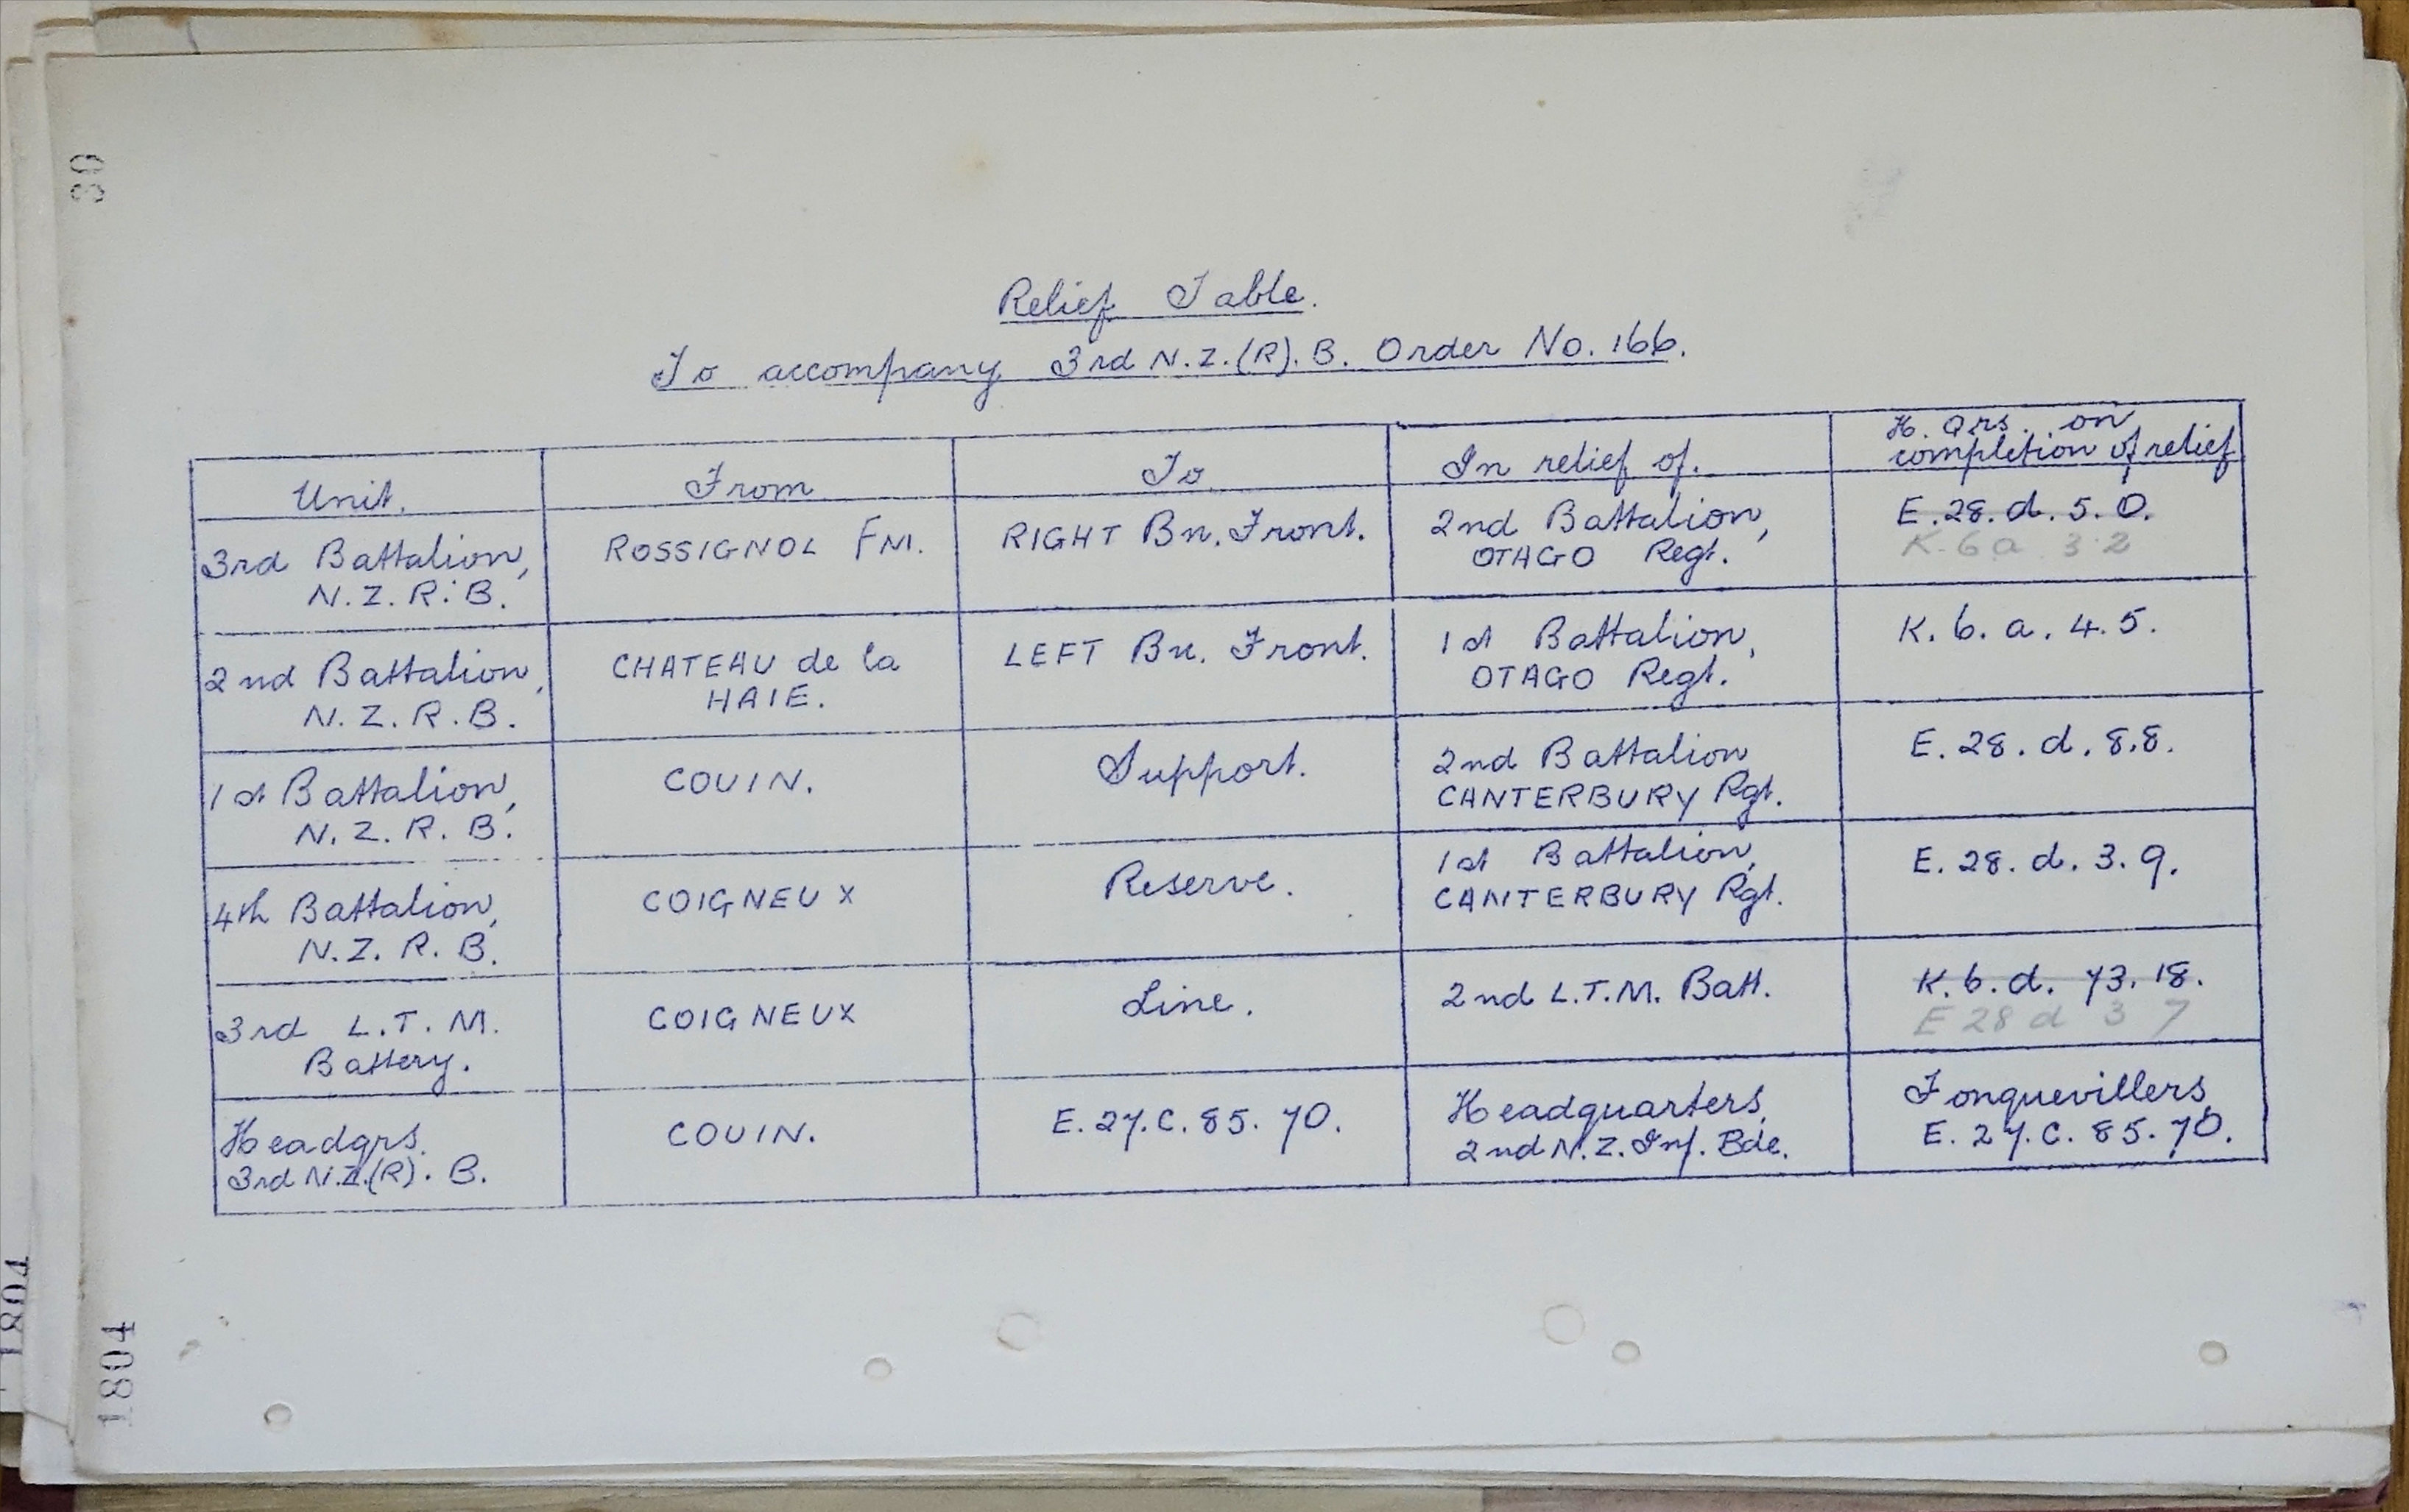 30
Relief Table.
To accompany 3rd N.Z.(R).B. Order No. 166.
Unit. From To In relief of. H. Qrs. on completion of relief
3rd Battalion, N.Z.R.B. ROSSIGNOL FM. RIGHT Bn. Front. 2nd Battalion, OTAGO Regt. E.28.d.5.0. K.6a 3.2
2nd Battalion, N.Z.R.B. CHATEAU de la HAIE. LEFT Bn. Front. 1st Battalion, OTAGO Regt. K.6.a.4.5.
1st Battalion, N.Z.R.B. COUIN. Support. 2nd Battalion CANTERBURY Rgt. E.28.d.8.8.
4th Battalion, N.Z.R.B. COIGNEUX Reserve. 1st Battalion, CANTERBURY Rgt. E.28.d.3.9.
3rd L.T.M. Battery. COIGNEUX Line. 2nd L.T.M. Batt. K.6.d.73.18. E 28 d 3 7
Headqrs. 3rd N.Z.(R).B. COUIN. E.27.C.85.70. Headquarters, 2nd N.Z.Inf. Bde. Fonquevillers, E.27.C.85.70.
1804
1804